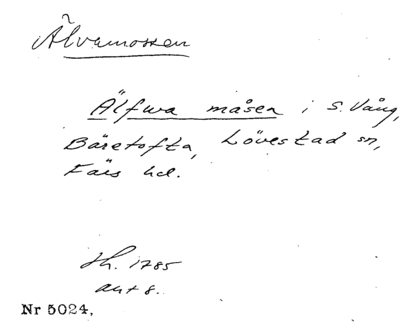 Älvamossen
Älfwa måsen i S. Vång,
Bäretofta, Lövestad sn,
Färs hd.
Hh. 1785
akt 8.
Nr 5024.